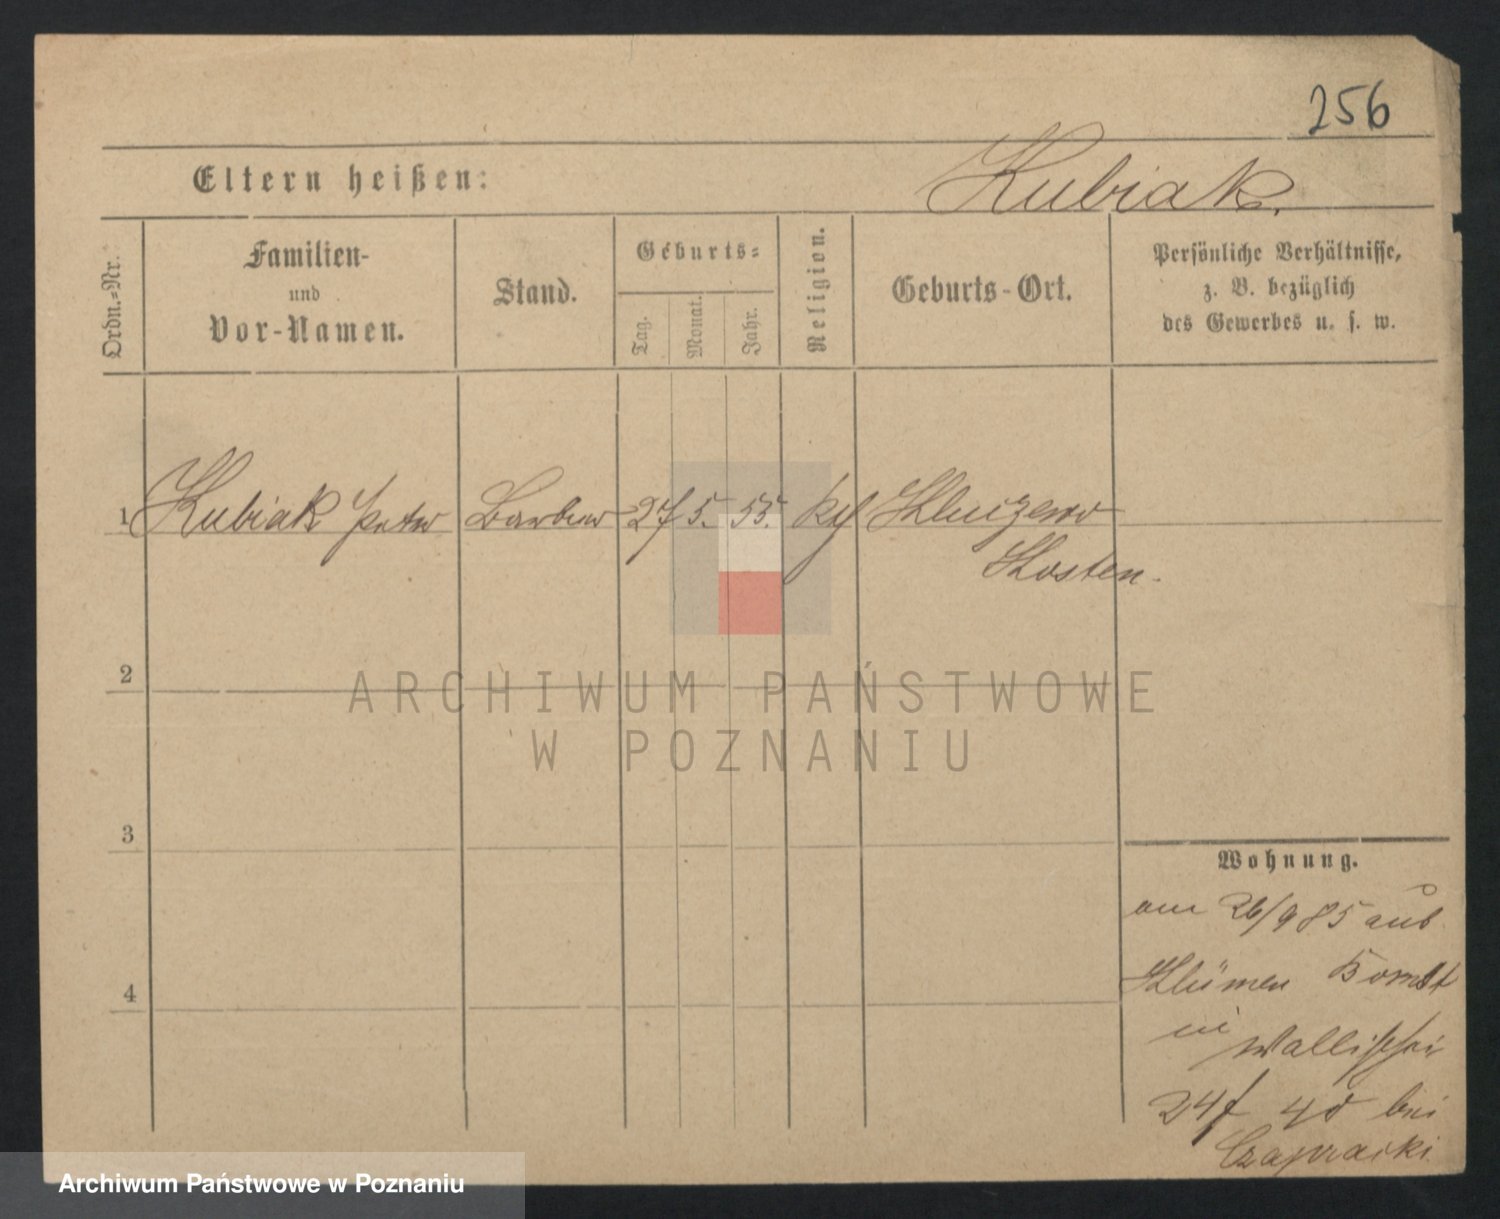 256
Eltern heißen: Kubiak.
Ordn.=Nr. Familien- und Vor-Namen. Stand. Geburts= Tag. Monat. Jahr. Religion. Geburts-Ort. Persönliche Verhältnisse, z. B. bezüglich des Gewerbes u. s. w.
1 Kubiak Peter Barbier 27 5. 53. kth Kluczewo
Kosten.
2
ARCHIWUM PAŃSTWOWE
W POZNANIU
3
4
Wohnung.
am 26/9 85 aus
in Wallischei
24 40 bei
Archiwum Państwowe w Poznaniu